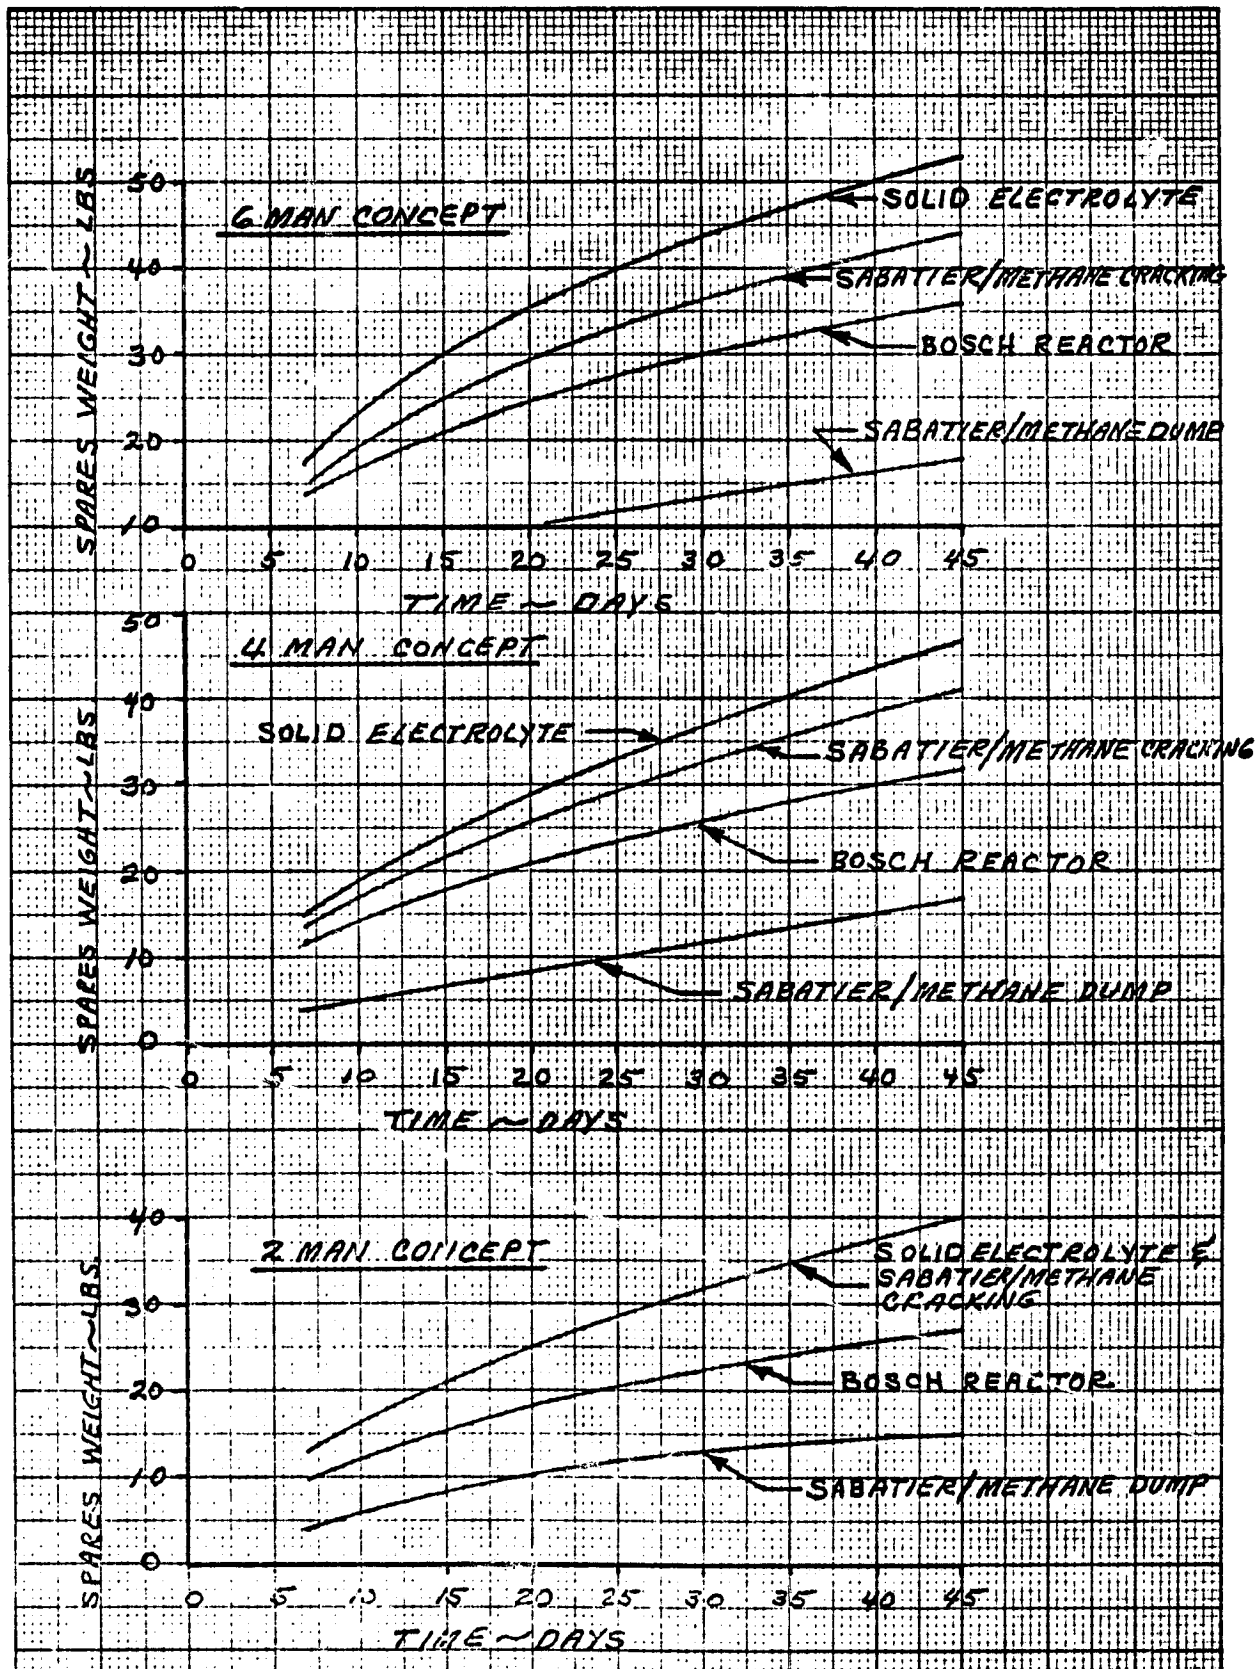 SPARES WEIGHT ~ LBS
50
40
30
20
10
6 MAN CONCEPT
SOLID ELECTROLYTE
SABATIER/METHANE CRACKING
BOSCH REACTOR
SABATIER/METHANE DUMP
0 5 10 15 20 25 30 35 40 45
TIME ~ DAYS
SPARES WEIGHT ~ LBS
50
40
30
20
10
0
4 MAN CONCEPT
SOLID ELECTROLYTE
SABATIER/METHANE CRACKING
BOSCH REACTOR
SABATIER/METHANE DUMP
0 5 10 15 20 25 30 35 40 45
TIME ~ DAYS
SPARES WEIGHT ~ LBS.
40
30
20
10
0
2 MAN CONCEPT
SOLID ELECTROLYTE &
SABATIER/METHANE
CRACKING
BOSCH REACTOR
SABATIER/METHANE DUMP
0 5 10 15 20 25 30 35 40 45
TIME ~ DAYS